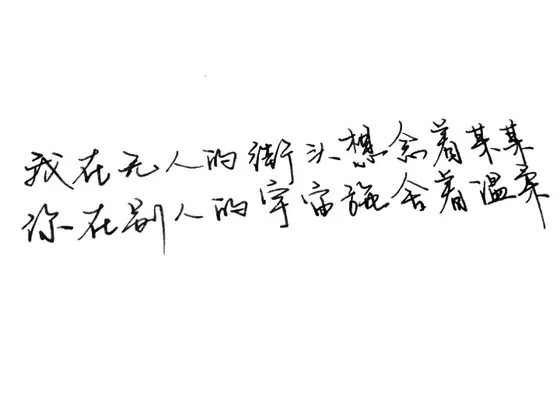 我在无人的街头想念着某某
你在别人的宇宙施舍着温柔